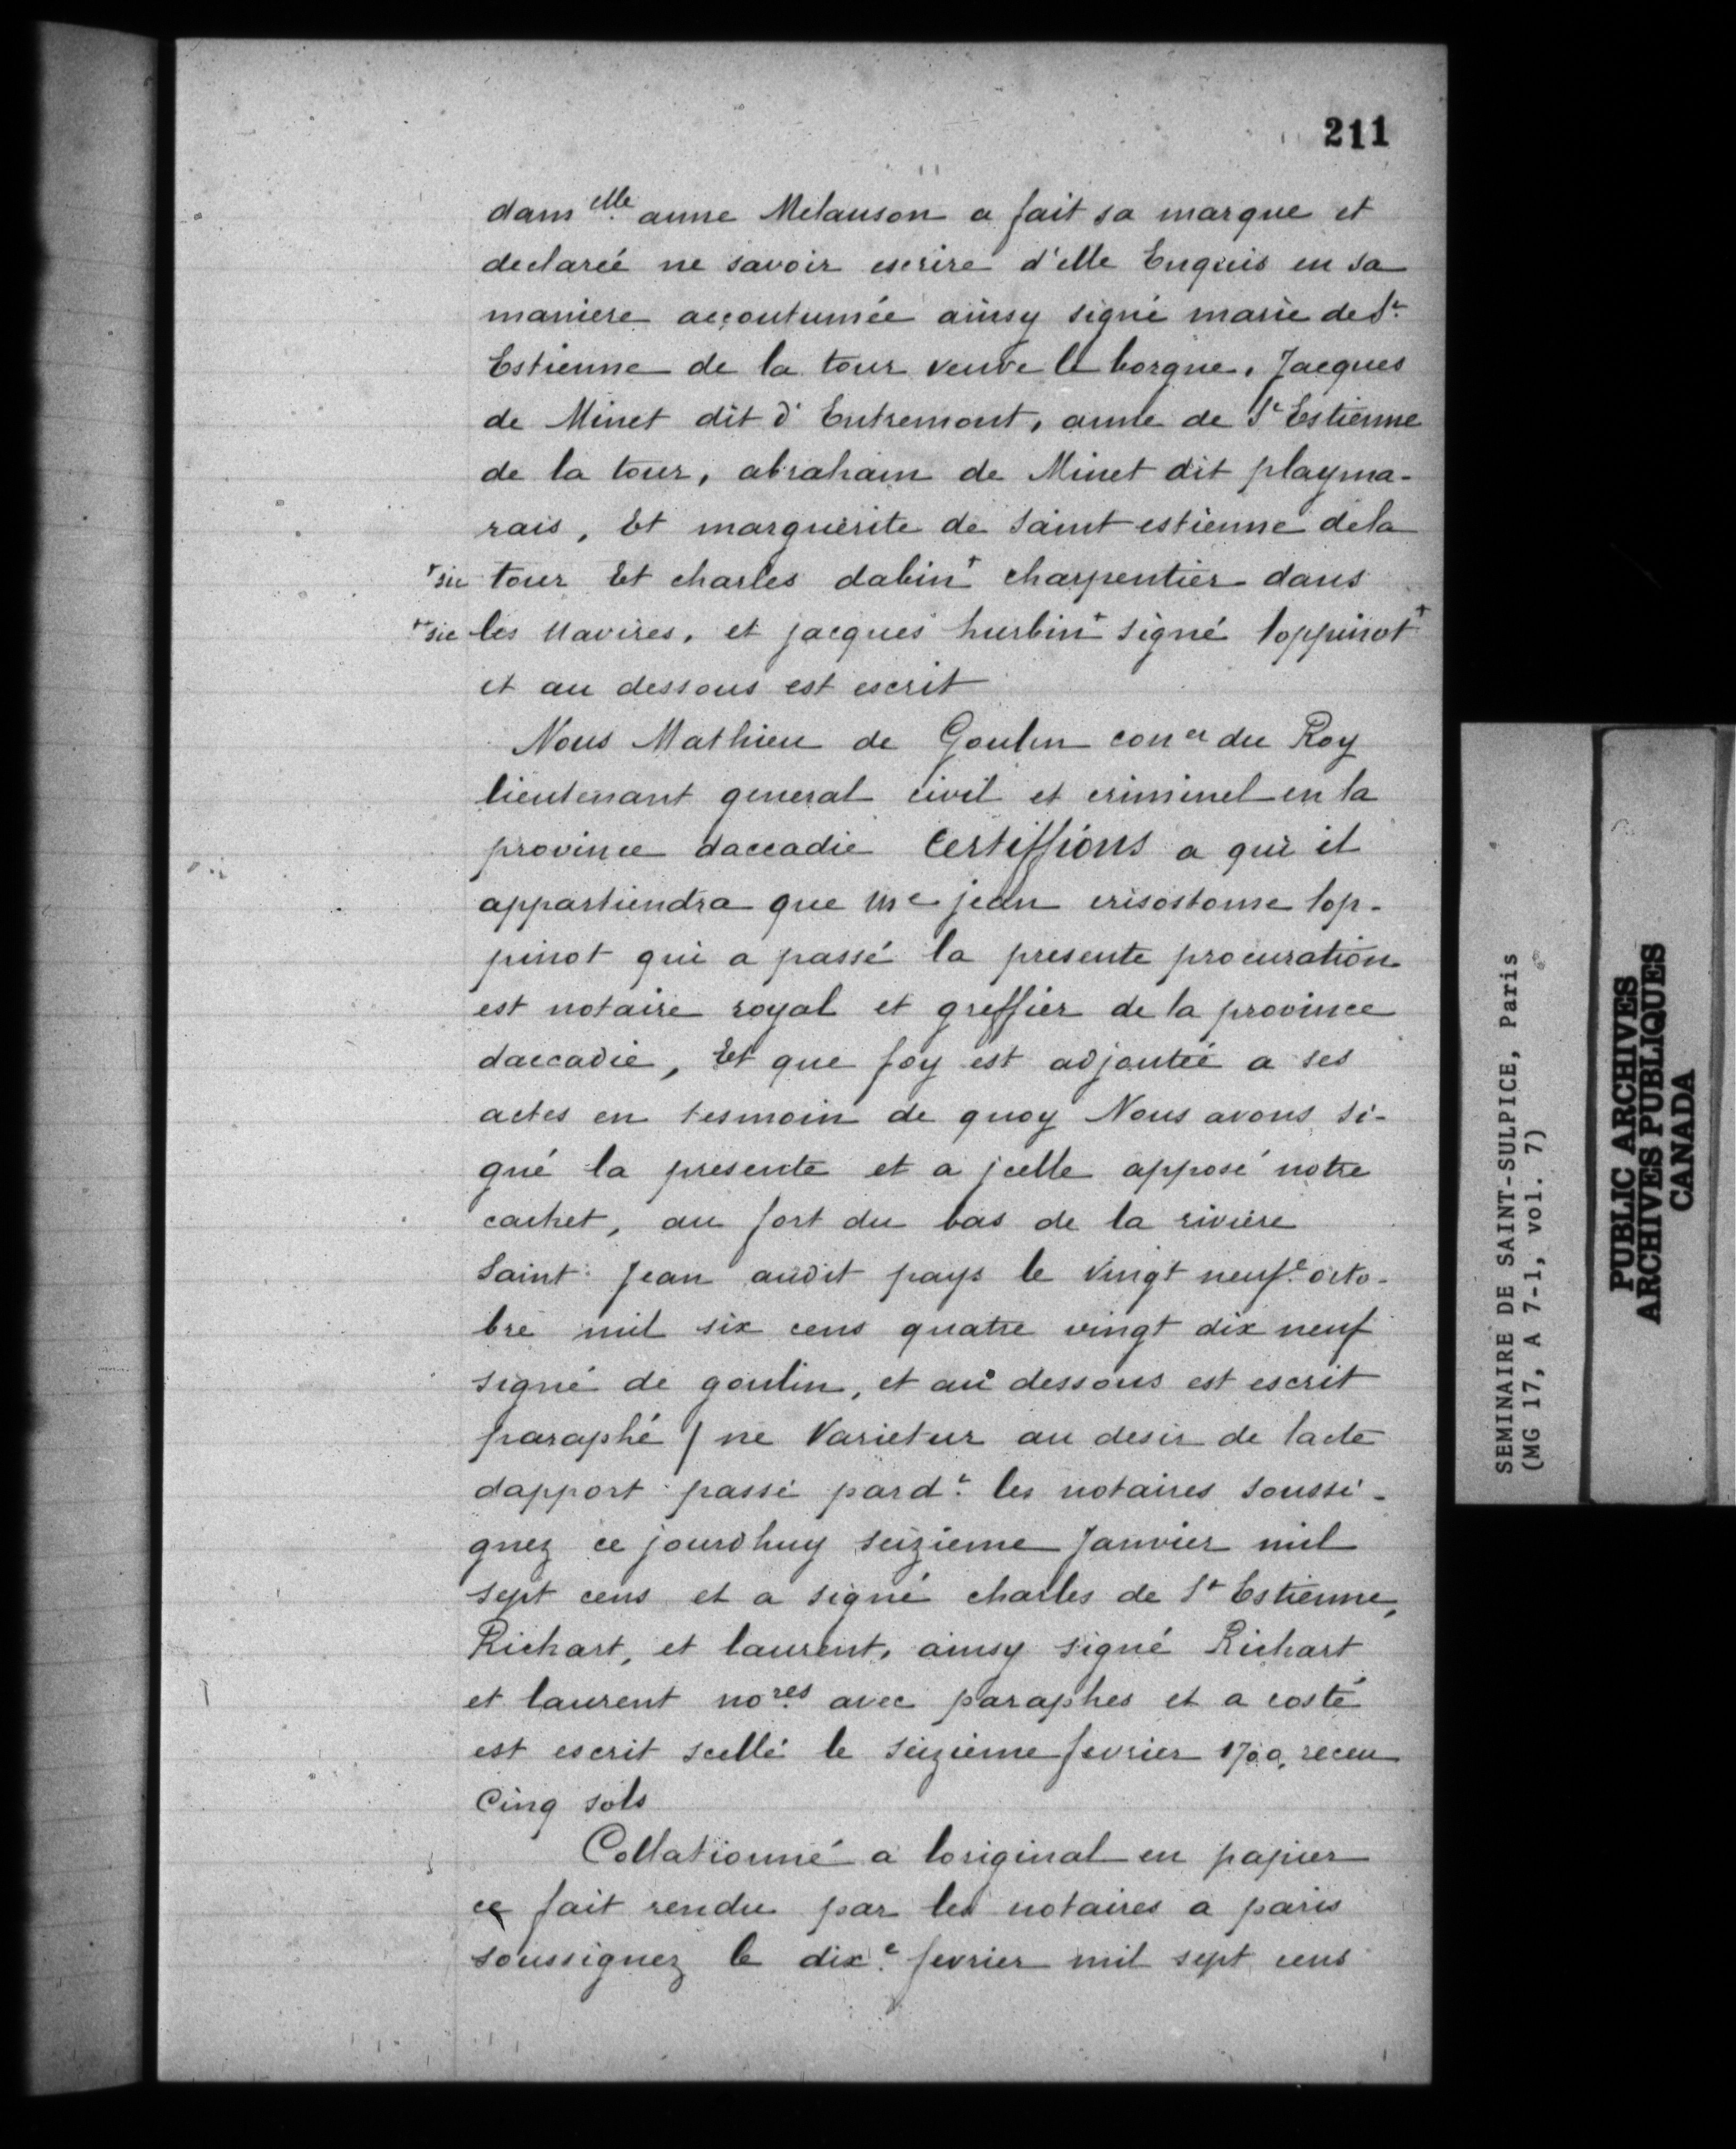 211
dam elle anne Melanson a fait sa marque et
declareé ne savoir escrire d'elle Enquis en sa
maniere accoutumée ainsy signé marie de St
Estienne de la tour veuve le borgne, Jacques
de Minet dit d'Entremont, anne de St Estienne
de la tour, abraham de Minet dit playma-
rais, Et marguerite de saint estienne dela
+sic tour Et charles dabin+ charpentier dans
++sic les Navires, et jacques hurbin+ signé loppinot+
et au dessous est escrit
Nous Mathieu de Goulin coner du Roy
lieutenant general civil et criminel en la
province daccadie Certiffions a qui il
appartiendra que Me jean crisostome lop-
pinot qui a passé la presente procuration
est notaire royal et greffier de la province
daccadie, Et que foy est adjoutée a ses
actes en tesmoin de quoy Nous avons si-
gné la presente et a jcelle apposé notre
cachet, au fort du bas de la riviere
Saint Jean audit pays le Vingt neufe octo-
bre mil six cens quatre vingt dix neuf
signé de goulin, et au dessous est escrit
paraphé / ne Varietur au desir de lacte
dapport passé pardt les notaires soussi-
gnez ce jourdhuy seizieme Janvier mil
sept cens et a signé charles de St Estienne,
Richart, et laurent, ainsy signé Richart
et laurent nores avec paraphes et a costé
est escrit scellé le seizieme fevrier 1700, receu
Cinq sols
Collationné a loriginal en papier
ce fait rendu par les notaires a paris
soussignez le dixe fevrier mil sept cens
SEMINAIRE DE SAINT-SULPICE, Paris
(MG 17, A 7-1, vol. 7)
PUBLIC ARCHIVES
ARCHIVES PUBLIQUES
CANADA